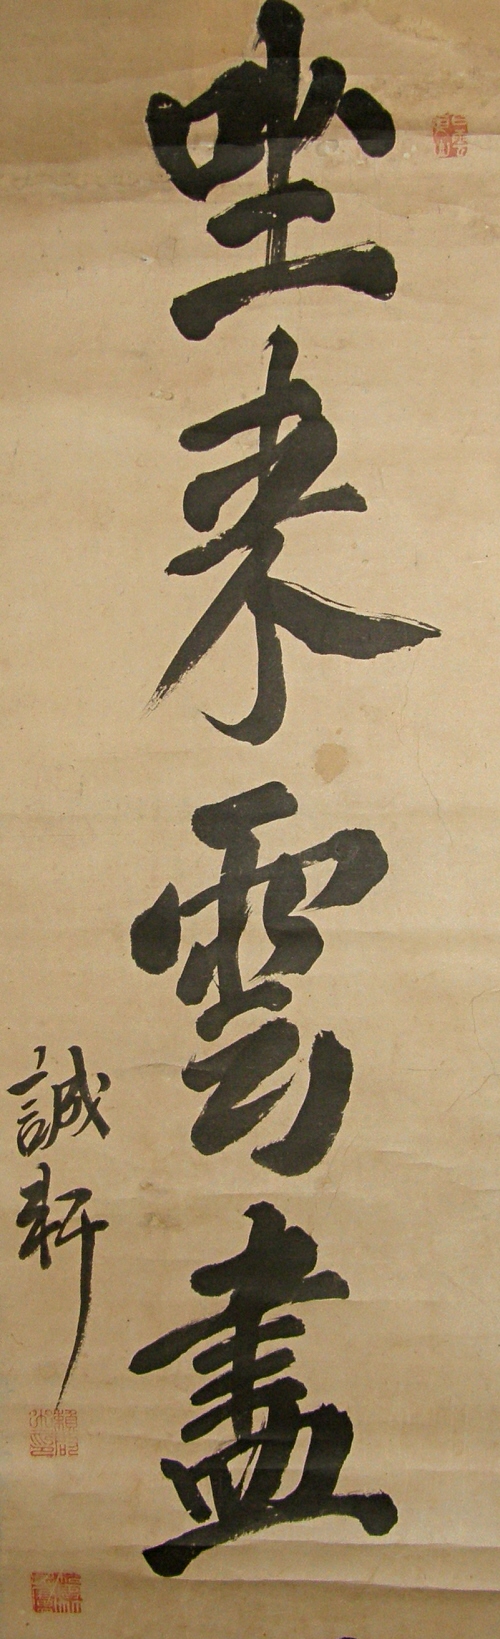 坐来雲盡
誠軒